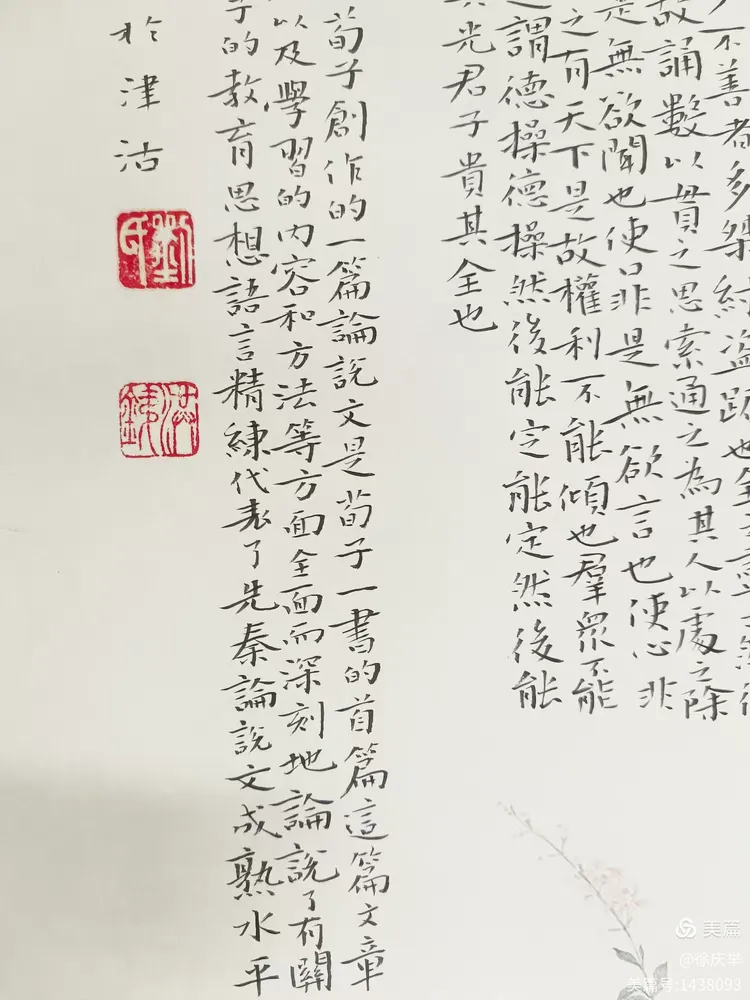 不善者多桀紂盜跖也全
故誦數以貫之思索通之為其人以處之除
是無欲聞也使口非是無欲言也使心非
之有天下是故權利不能傾也羣眾不能
之謂德操德操然後能定能定然後能
其光君子貴其全也
荀子創作的一篇論說文是荀子一書的首篇這篇文章
以及學習的內容和方法等方面全面而深刻地論說了有關
子的教育思想語言精練代表了先秦論說文成熟水平
於津沽
劉氏
美篇
@徐庆举
美篇号:1438093